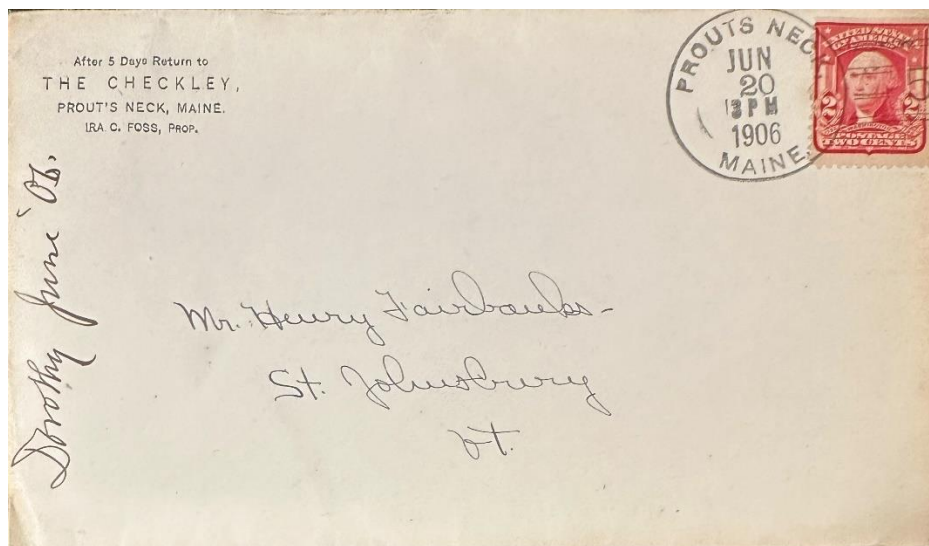 After 5 Days Return to
THE CHECKLEY,
PROUT'S NECK, MAINE.
IRA C. FOSS, PROP.
PROUTS NECK
JUN
20
3 PM
1906
MAINE.
UNITED STATES
OF AMERICA
2 2
POSTAGE
TWO CENTS
Dorothy June '06.
Mr. Henry Fairbanks-
St. Johnsbury
Vt.